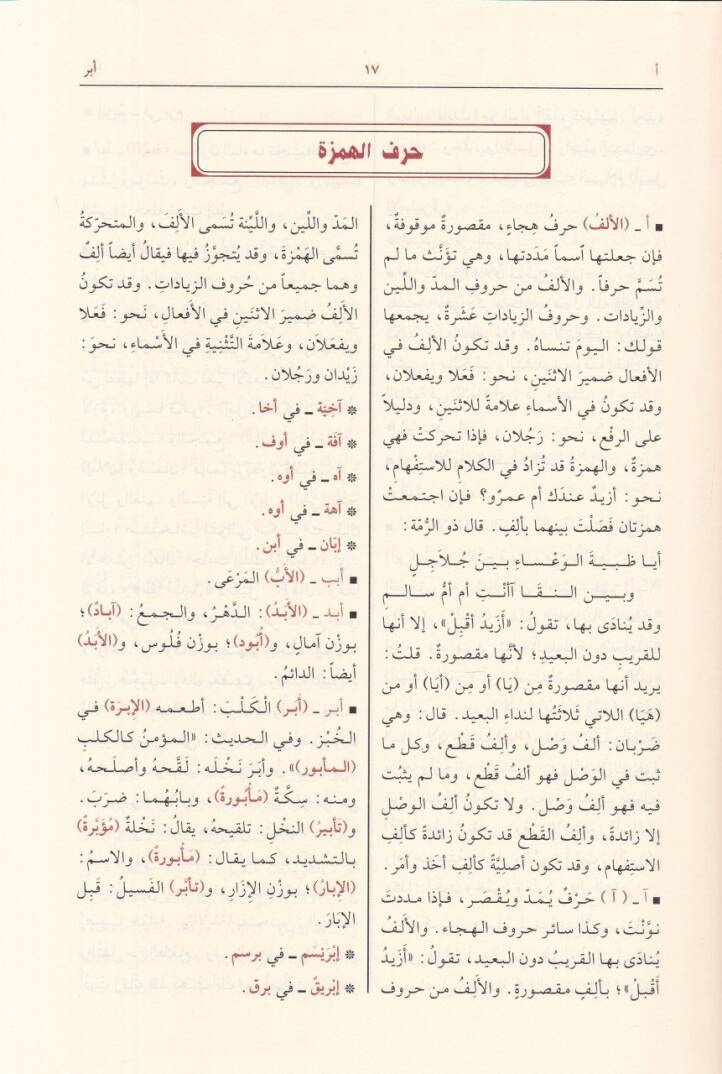 أ
١٧
أبر
حرف الهمزة
■ أ ـ (الألفُ) حرفُ هِجاءٍ، مقصورةٌ موقوفةٌ،
فإن جعلتها ٱسماً مَدَدتها، وهي تؤنَّث ما لم
تُسَمَّ حرفاً. والألفُ من حروفِ المدّ واللّين
والزّيادات. وحروفُ الزياداتِ عَشَرةٌ، يجمعها
قولك: اليومَ تنساهُ. وقد تكونُ الألِفُ في
الأفعال ضميرَ الاثنَينِ، نحو: فَعَلا ويفعلان،
وقد تكونُ في الأسماءِ علامةً للاثنَينِ، ودليلاً
على الرفْعِ، نحو: رَجُلان، فإذا تحركتْ فهي
همزةٌ، والهمزةُ قد تُزَادُ في الكلامِ للاستِفْهامِ،
نحو: أزيدٌ عندكَ أم عمرٌو؟ فإن اجتمعتْ
همزتان فَصَلْتَ بينهما بألِفٍ. قال ذو الرُّمّة:
أيـا ظَـبـيـةَ الـوَعْـسـاءِ بـيـنَ جُـلاجِـلٍ
وبـيـن الـنـقـا آأنْـتِ أم أمُّ سـالـمِ
وقد يُنادَى بها، تقولُ: «أَزَيدُ أقْبِلْ»، إلا أنها
للقريبِ دون البعيدِ؛ لأنَّها مقصورةٌ. قلتُ:
يريد أنها مقصورةٌ مِن (يَا) أو مِن (أيَا) أو من
(هَيَا) اللاتي ثلاثَتُها لنداءِ البعيد. قال: وهي
ضَرْبان: ألفُ وَصْل، وألِفُ قَطْع، وكل ما
ثبت في الوَصْل فهو ألفُ قَطْع، وما لم يثبُت
فيه فهو ألِفُ وَصْل. ولا تكونُ ألفُ الوصْلِ
إلا زائدةً، وألِفُ القَطْع قد تكونُ زائدةً كألِفِ
الاستِفهام، وقد تكون أصليَّةً كألِفِ أخَذ وأمَر.
■ آ ـ (آ) حَرْفٌ يُمَدّ ويُقْصَر، فإذا مددتَ
نوَّنْتَ، وكذا سائر حروف الهجاء. والألفُ
يُنادَى بها القريبُ دون البعيد، تقولُ: «أَزَيدُ
أقْبلْ»؛ بألِفٍ مقصورةٍ. والألِفُ من حروف
المَدّ واللّين، واللَّيِّنة تُسَمى الأَلِفَ، والمتحرّكةُ
تُسمَّى الهَمْزةَ، وقد يُتجوَّزُ فيها فيقالُ أيضاً ألِفٌ
وهما جميعاً من حُروف الزيادات. وقد تكونُ
الأَلِفُ ضميرَ الاثنَينِ في الأفعال، نَحو: فَعَلا
ويفعَلان، وعَلامَةَ التَّثْنِيةِ في الأسْماءِ، نحوَ:
زَيْدان ورَجُلان.
* آخِيّة ـ في أخا.
* آفَة ـ في أوف.
* آه ـ في أوه.
* آهة ـ في أوه.
* إبّان ـ في أبن.
■ أبب ـ (الأَبُّ) المَرْعَى.
■ أبـد ـ (الأَبَدُ): الدَّهْرُ، والجمعُ: (آبادٌ)؛
بوزْن آمالٍ، و(أُبُود)؛ بوزْنِ فُلُوس، و(الأَبَدُ)
أيضاً: الدائمُ.
■ أبـر ـ (أَبَر) الْكَلْبَ: أطعمه (الإبْرَة) في
الخُبْز. وفي الحديث: «المؤمنُ كالكلبِ
(المأبور)». وأبَرَ نَخْلَه: لَقَّحهُ وأصلَحهُ،
ومنه: سِكَّةٌ (مَأْبُورةٌ)، وبابُهُما: ضرَبَ.
و(تأبيرُ) النخْلِ: تلقيحُه، يقالُ: نَخْلةٌ (مُؤَبَّرةٌ)
بالتشديد، كما يقال: (مَأْبورةٌ)، والاسمُ:
(الإبارُ)؛ بوَزْنِ الإزَارِ، و(تأبَّر) الفَسيلُ: قَبِل
الإبَارَ.
* إبْرَيْسَم ـ في برسم.
* إبْريقٌ ـ في برق.